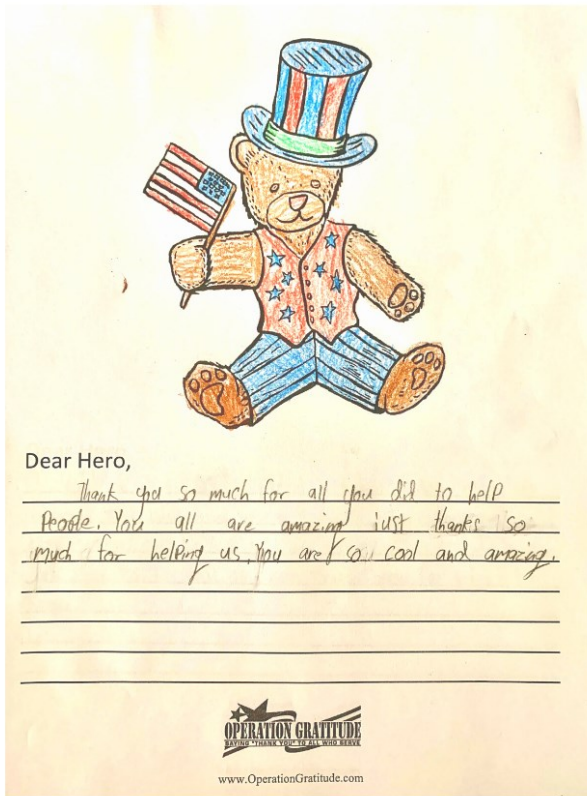 Dear Hero,
Thank you so much for all you did to help
People. You all are amazing just thanks so
much for helping us. You are so cool and amazing.
OPERATION GRATITUDE
SAYING "THANK YOU" TO ALL WHO SERVE
www.OperationGratitude.com